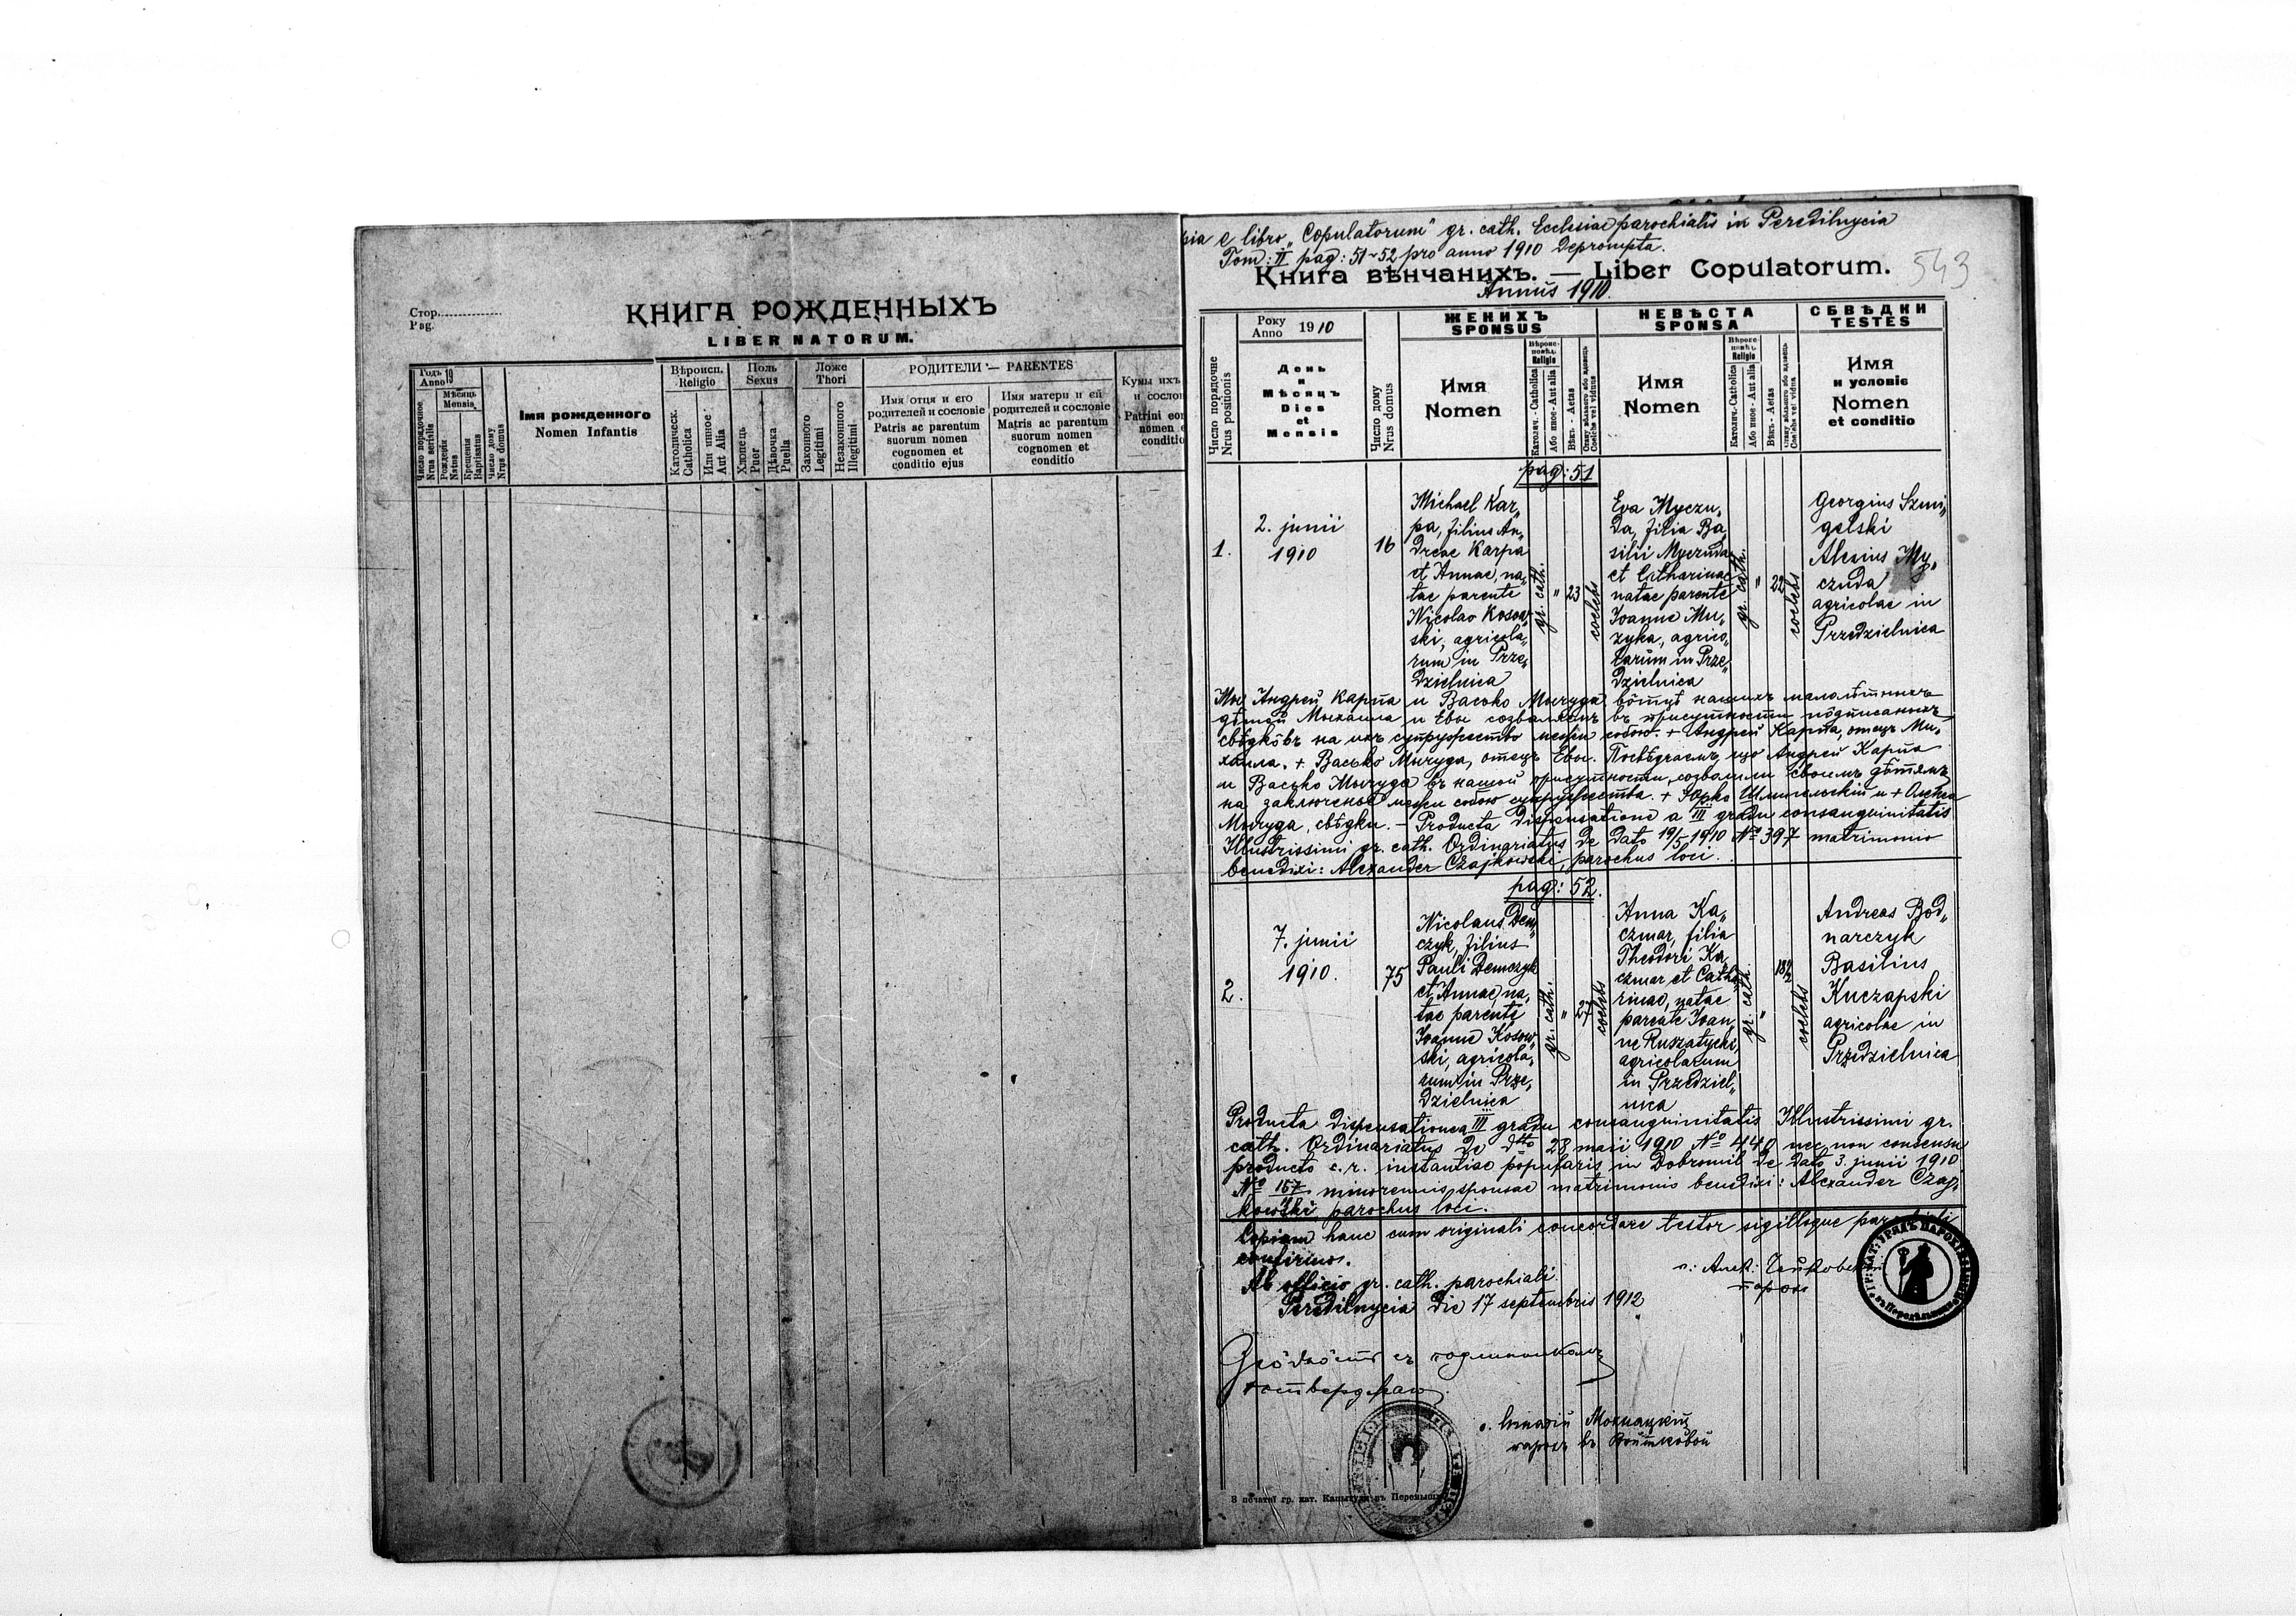 Стор.
Pag.
КНИГА РОЖДЕННЫХЪ
LIBER NATORUM.
Годъ 19
Anno
Мѣсяць
Mensis
Число порядочное
Nrus serialis
Рожденіе
Natus
Крещенія
Baptisatus
Число дому
Nrus domus
Імя рожденного
Nomen Infantis
Вѣроисп.
Religio
Католическ.
Catholica
Или инное
Aut Alia
Поль
Sexus
Хлопець
Puer
Дѣвочка
Puella
Ложе
Thori
Законного
Legitimi
Незаконного
Illegitimi
РОДИТЕЛИ — PARENTES
Имя отця и его
родителей и сословіе
Patris ac parentum
suorum nomen
cognomen et
conditio ejus
Имя матери и ей
родителей и сословіе
Matris ac parentum
suorum nomen
cognomen et
conditio
Кумы ихъ
и сослов
Patrini eor
nomen e
conditio
pia e libro „Copulatorum" gr. cath. Ecclesiae parochialis in Peredilnycia
Tom: II pag: 51-52 pro anno 1910 deprompta.
Книга вѣнчанихъ. — Liber Copulatorum.
543
Annus 1910.
Число порядочне
Nrus positionis
Року
Anno 1910
День
и
Мѣсяць
Dies
et
Mensis
Число дому
Nrus domus
ЖЕНИХЪ
SPONSUS
Имя
Nomen
Вѣроис-
повѣд.
Religio
Католич. - Catholica
Або инное - Aut alia
Вѣкъ - Aetas
Стану вôльного або вдовець
Coelebs vel viduus
НЕВѢСТА
SPONSA
Имя
Nomen
Вѣроис-
повѣд.
Religio
Католич. - Catholica
Або инное - Aut alia
Вѣкъ - Aetas
Coelebs vel vidua
СБВѢДКИ
TESTES
Имя
и условіе
Nomen
et conditio
pag: 51
1.
2. junii
1910
16
Michael Kar„
pa, filius An„
dreae Karpa
et Annae, na„
tae parente
Nicolao Kosow„
ski, agricola„
rum in Prze„
dzielnica
gr. cath.
"
23
coelebs
Eva Myczu„
da, filia Ba„
silii Myczuda
et Catharinae
natae parente
Joanne Mu„
zyka, agrico„
larum in Prze„
dzielnica
gr. cath.
"
22
coelebs
Georgius Szmi„
gelski
Alexius My„
czuda
agricolae in
Przedzielnica
Мы Андрей Карпа и Васько Мычуда вôтцѣ нашихъ малолѣтныхъ
дѣтей Михаила и Евы созваляємъ въ присутности пôдписаныхъ
свѣдкôвъ на ихъ супружество межи собою. + Андрей Карпа, отець Ми„
хаила. + Васько Мычуда, отець Евы. Посвѣдчаємъ, що Андрей Карпа
и Васько Мычуда въ нашой присутности созволили своимъ дѣтямъ
на заключеньє межи собою супружества. + Юрко Шмигельскій и + Олекса
Мычуда, свѣдки. — Producta dispensatione a III gradu consanguinitatis
Illustrissimi gr. cath. Ordinariatus de dato 19/5 1910 No 397 matrimonio
benedixi: Alexander Czajkowski, parochus loci.
pag: 52.
2.
7. junii
1910.
75
Nicolaus Dem„
czyk, filius
Pauli Demczyk
et Annae, na„
tae parente
Joanne Kosow„
ski, agricola„
rum in Prze„
dzielnica
gr. cath.
"
27
coelebs
Anna Ka„
czmar, filia
Theodori Ka„
czmar et Catha„
rinae, natae
parente Joan„
ne Ruszatycki,
agricolarum
in Przedziel„
nica
gr. cath.
"
18½
coelebs
Andreas Bod„
narczyk
Basilius
Kuczapski
agricolae in
Przedzielnica
Producta dispensationea III gradu consanguinitatis Illustrissimi gr.
cath. Ordinariatus de dto 28 maii 1910 No 440 nec non consensu
producto c. r. instantiae popularis in Dobromil de dato 3. junii 1910
No 157 minorennis sponsae matrimonis benedixi: Alexander Czaj„
kowski, parochus loci.
Copiam hanc cum originali concordare testor sigilloque parochiali
confirmo.
Ab officio gr. cath. parochiali
Peredilnycia die 17 septembris 1912
о: Алек: Чайковскій
парох
Згôднôсть съ подлинникомъ
потверджаю.
о. Игнатій Мохнацкій
парохъ въ Войтковой
З печатнї гр. кат. Капитули въ Перемышли